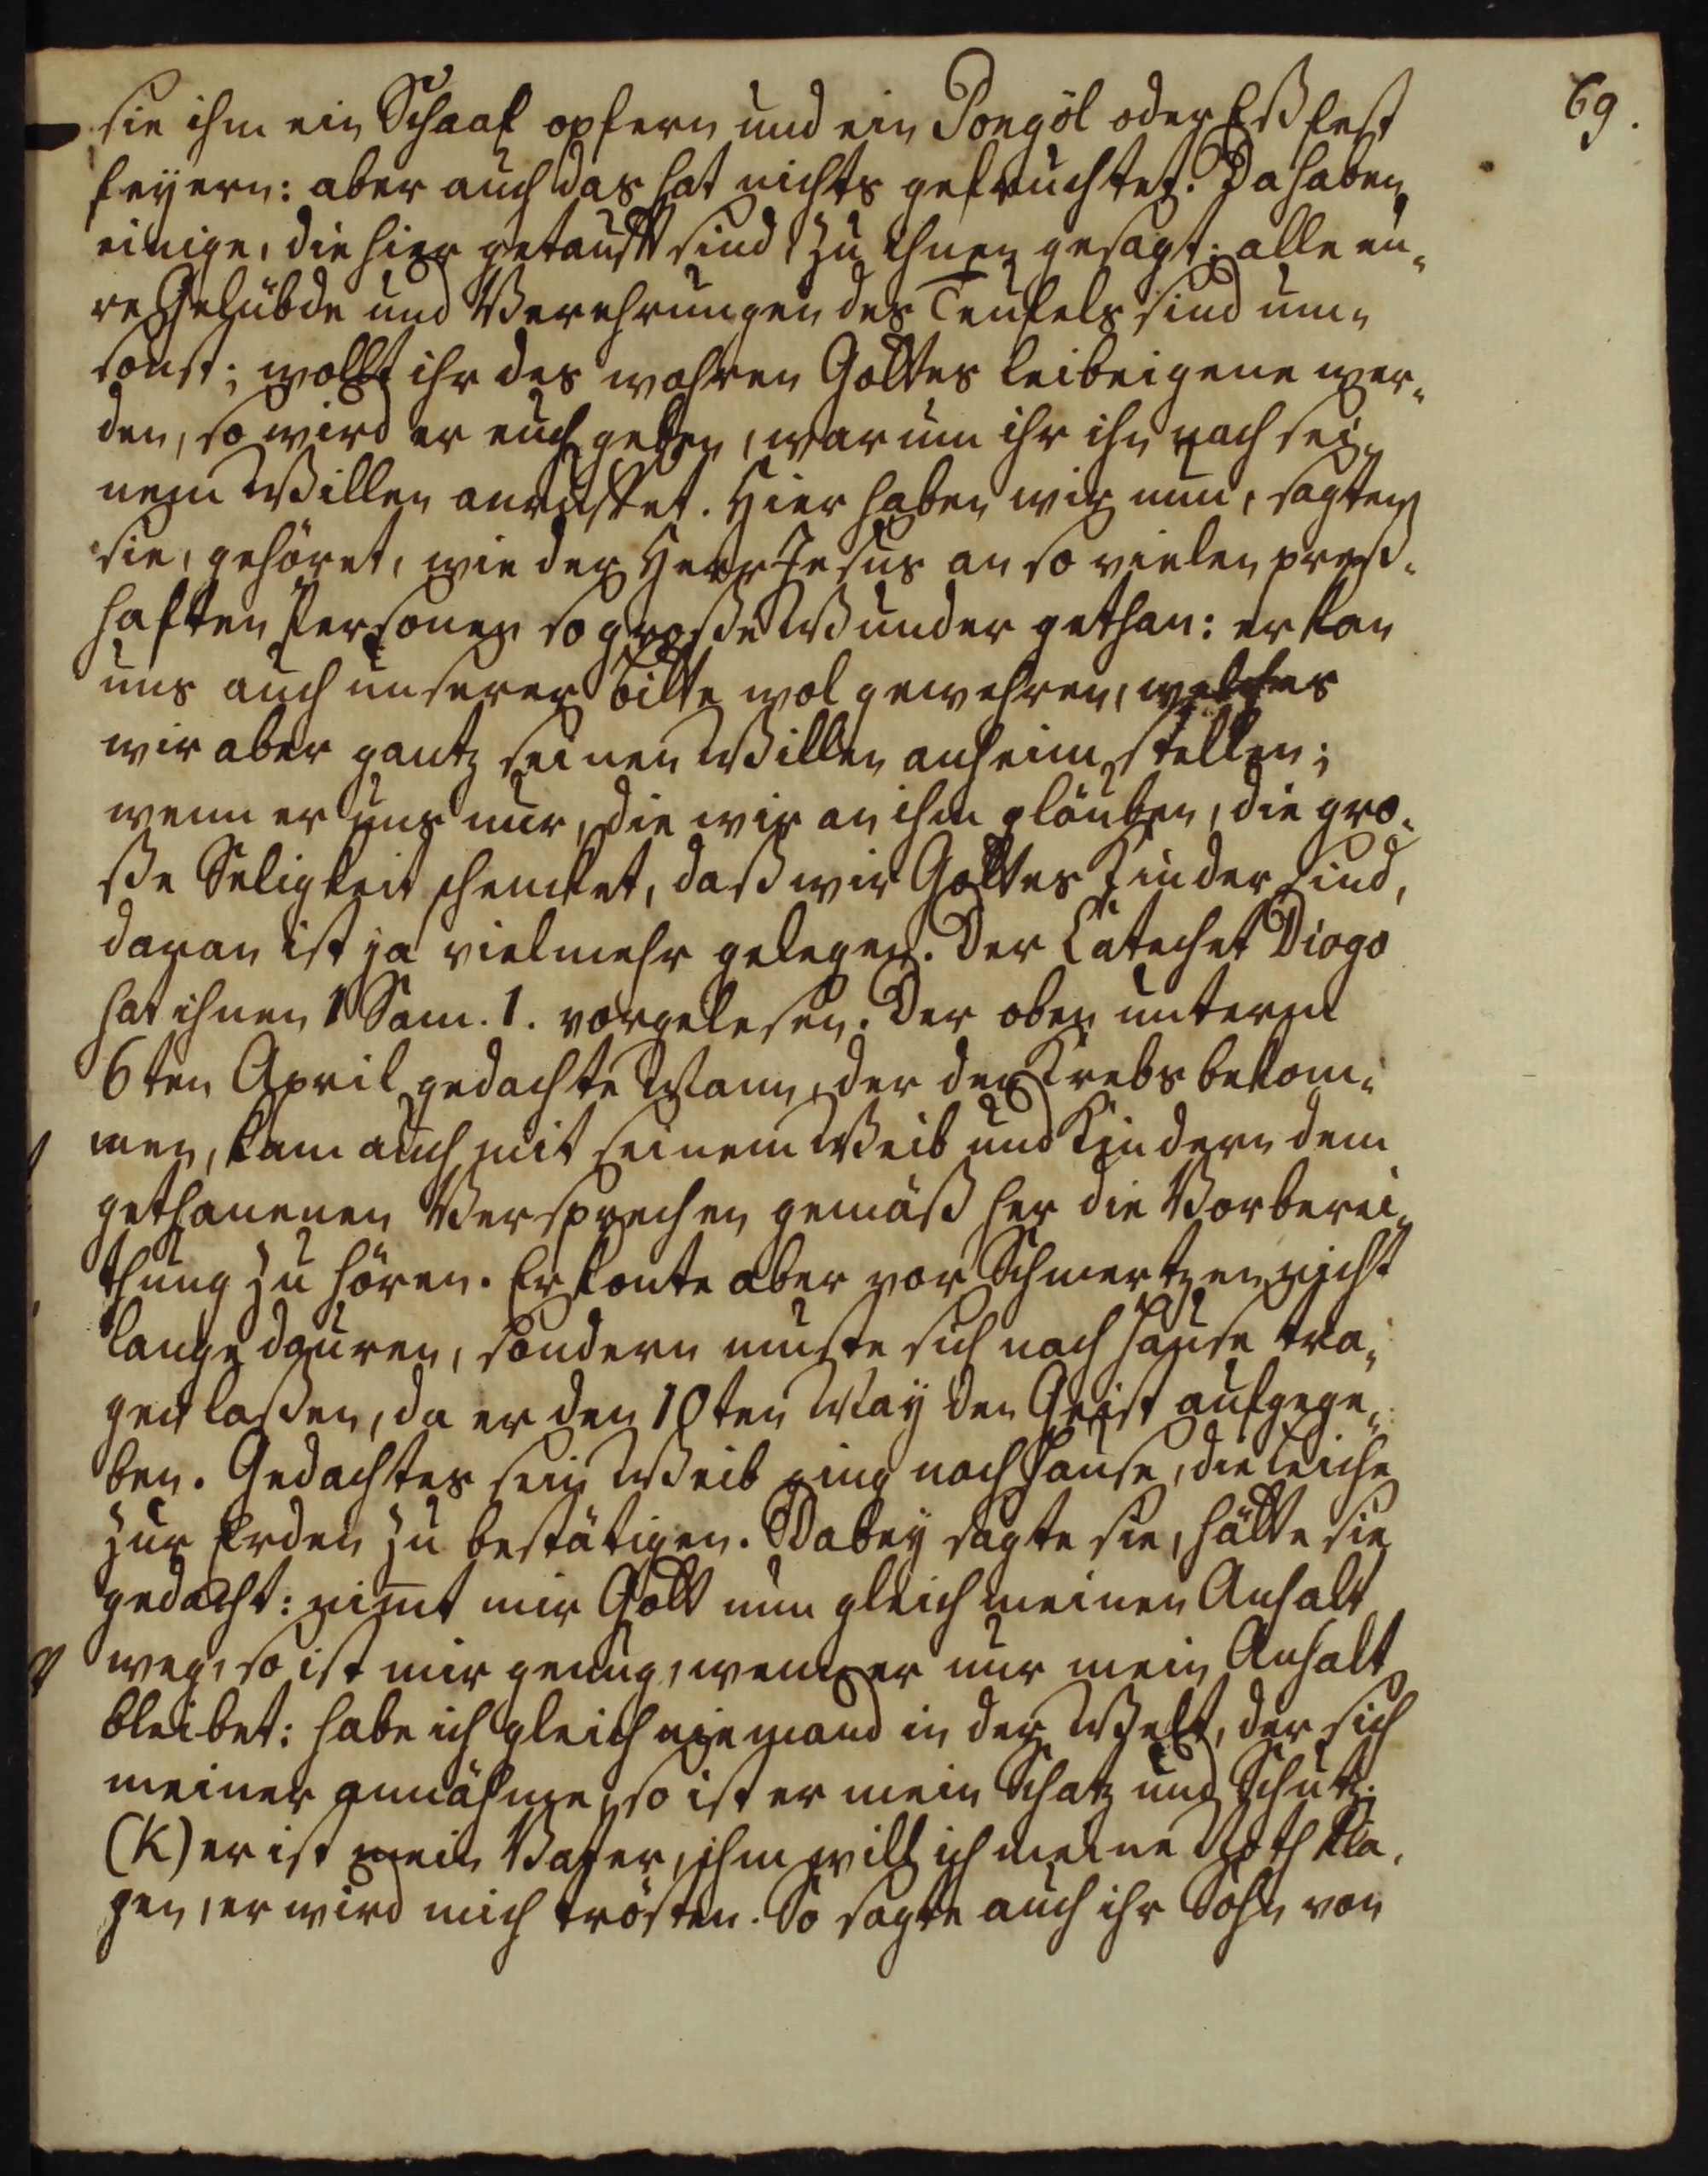 69.
sie ihm ein Schaaf opfern und ein Pongöl oder Eßfest
feyern: aber auch das hat nichts gefruchtet. Da haben
einige, die hier getaufft sind zu ihnen gesagt: alle eu-
re Gelübde und Verehrungen des Teufels sind um-
sonst; wollt ihr des wahren Gottes leibeigene wer-
den, so wird er euch geben, warum ihr ihn nach sei-
nem Willen anruffet. Hier haben wir nun, sagten
sie, gehöret, wie der Herr Jesus an so vielen preß-
haften Personen so große Wunder gethan: er kan
uns auch unserer bitte wol gewehren, welches
wir aber gantz seinen Willen anheim stellen;
wenn er uns nur, die wir an ihm gläuben, die gro-
ße Seligkeit schencket, daß wir Gottes Kinder sind,
daran ist ja vielmehr gelegen. Der Catechet Diogo
hat ihnen 1 Sam. 1. vorgelesen. Der oben unterm
6ten April gedachte Mann, der den Krebs bekom-
men, kam auch mit seinem Weib und Kindern dem
gethanenen Versprechen gemäß her die Vorberei-
thung zu hören. Er konte aber vor Schmertzen nicht
lange dauren, sondern muste sich nach Hause tra-
gen laßen, da er den 10ten May den Geist aufgege-
ben. Gedachtes sein Weib ging nach Hause, die Leiche
zur Erden zu bestätigen. Dabey sagte sie, hätte sie
gedacht: nim̅t mir Gott nun gleich meinen Anhalt
weg, so ist mir genug, wenn er nur mein Anhalt
bleibet: habe ich gleich niemand in der Welt, der sich
meiner annähme, so ist er mein Schatz und Schutz:
(K) er ist mein Vater, ihm will ich meine Noth kla-
gen, er wird mich trösten. So sagte auch ihr Sohn von